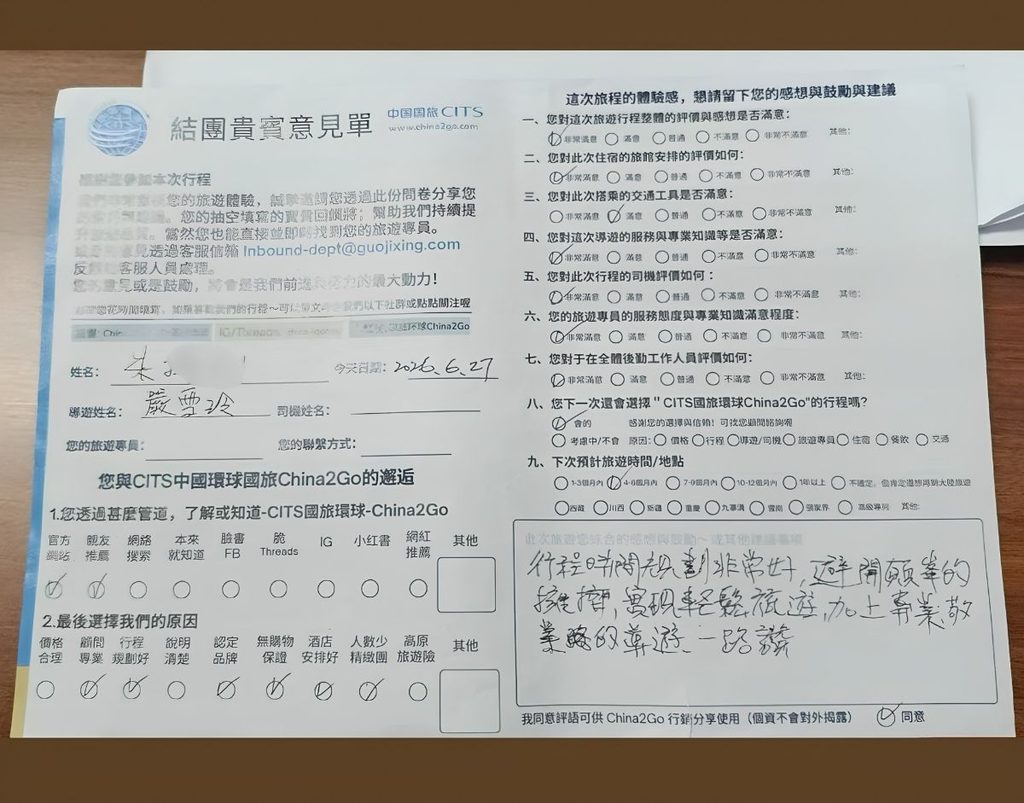 結團貴賓意見單
中国国旅CITS
www.china2go.com
本次行程
您的旅遊體驗，誠摯邀請您透過此份問卷分享您
您的抽空填寫的寶貴回饋將；幫助我們持續提
當然您也能直接並即時找到您的旅遊專員。
見透過客服信箱 Inbound-dept@guojixing.com
反饋給客服人員處理。
您的意見或是鼓勵，將會是我們前進與努力的最大動力！
環球China2Go
姓名： 朱
今天日期： 2026.6.27
導遊姓名： 嚴雪玲 司機姓名：
您的旅遊專員： 您的聯繫方式：
您與CITS中國環球國旅China2Go的邂逅
1.您透過甚麼管道，了解或知道-CITS國旅環球-China2Go
官方網站 親友推薦 網絡搜索 本來就知道 臉書FB 脆Threads IG 小红書 網紅推薦 其他
2.最後選擇我們的原因
價格合理 顧問專業 行程規劃好 說明清楚 認定品牌 無購物保證 酒店安排好 人數少精緻團 高原旅遊險 其他
這次旅程的體驗感，懇請留下您的感想與鼓勵與建議
一、您對這次旅遊行程整體的評價與感想是否滿意：
非常滿意 滿意 普通 不滿意 非常不滿意 其他：
二、您對此次住宿的旅館安排的評價如何：
非常滿意 滿意 普通 不滿意 非常不滿意 其他：
三、您對此次搭乘的交通工具是否滿意：
非常滿意 滿意 普通 不滿意 非常不滿意 其他：
四、您對這次導遊的服務與專業知識等是否滿意：
非常滿意 滿意 普通 不滿意 非常不滿意 其他：
五、您對此次行程的司機評價如何：
非常滿意 滿意 普通 不滿意 非常不滿意 其他：
六、您的旅遊專員的服務態度與專業知識滿意程度：
非常滿意 滿意 普通 不滿意 非常不滿意 其他：
七、您對于在全體後勤工作人員評價如何：
非常滿意 滿意 普通 不滿意 非常不滿意 其他：
八、您下一次還會選擇 " CITS國旅環球China2Go"的行程嗎?
會的 感謝您的選擇與信賴! 可找您顧問諮詢喔
考慮中/不會 原因： 價格 行程 導遊/司機 旅遊專員 住宿 餐飲 交通
九、下次預計旅遊時間/地點
1-3個月內 4-6個月內 7-9個月內 10-12個月內 1年以上 不確定，但肯定還想再朝大陸旅遊
西藏 川西 新疆 重慶 九寨溝 雲南 張家界 高級專列 其他:
此次旅遊您綜合的感想與鼓勵～或其他建議事項
行程時間規劃非常好，避開顛峯的
擁擠，實現輕鬆旅遊，加上專業敬
業的導遊一路讚
我同意評語可供 China2Go 行銷分享使用（個資不會對外揭露） 同意